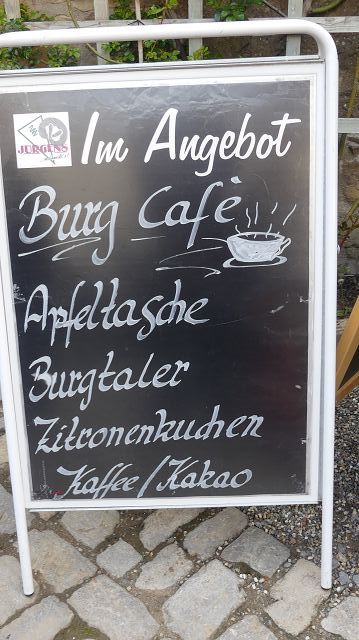 JÜRGENS
Im Angebot
Burg Café
Apfeltasche
Burgtaler
Zitronenkuchen
Kaffee/Kakao